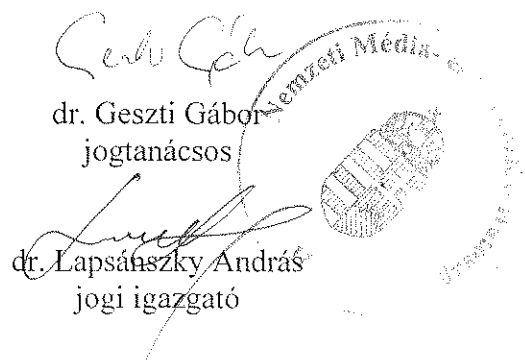 dr. Geszti Gábor
jogtanácsos
dr. Lapsánszky András
jogi igazgató
Nemzeti Média-